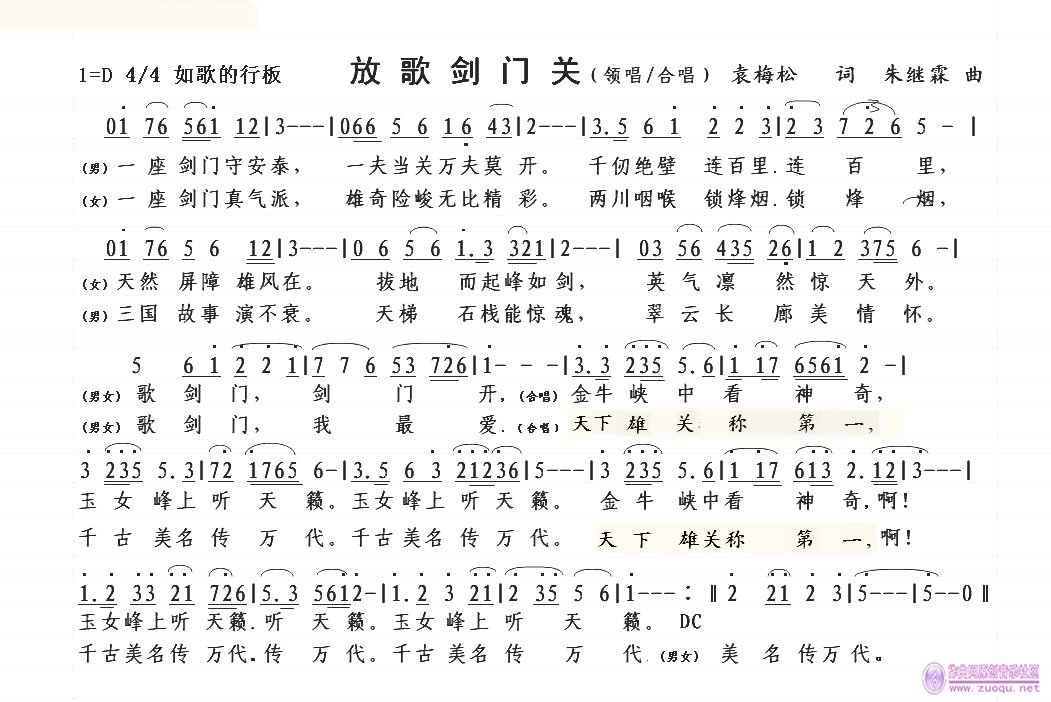 1=D 4/4 如歌的行板 放歌剑门关(领唱/合唱) 袁梅松 词 朱继霖 曲
01 76 561 12|3---|066 5 6 16 43|2---|3.5 6 1 2 2 3|2 3 7 2 6 5 - |
(男)一座剑门守安泰， 一夫当关万夫莫 开。 千仞绝壁 连百里.连 百 里，
(女)一座剑门真气派， 雄奇险峻无比精 彩。 两川咽喉 锁烽烟.锁 烽 烟，
01 76 5 6 12|3---|0 6 5 6 1.3 321|2---| 03 56 435 26|1 2 375 6 -|
(女)天然 屏障 雄风在。 拔地 而起峰如剑， 英 气 凛 然 惊 天 外。
(男)三国 故事 演不衰。 天梯 石栈能惊魂， 翠 云 长 廊 美 情 怀。
5 6 1 2 2 1|7 7 6 53 726|1- - -|3.3 235 5.6|1 17 6561 2 -|
(男女)歌 剑 门， 剑 门 开，(合唱)金牛 峡 中 看 神 奇，
(男女)歌 剑 门， 我 最 爱.(合唱)天下 雄 关 称 第 一，
3 235 5.3|72 1765 6-|3.5 6 3 21236|5---|3 235 5.6|1 17 613 2.12|3---|
玉 女 峰上 听 天 籁。玉女峰上 听 天 籁。 金 牛 峡中看 神 奇，啊！
千 古 美名 传 万 代。千古 美名 传 万 代。 天 下 雄关称 第 一，啊！
1.2 33 21 726|5.3 5612-|1.2 3 21|2 35 5 6|1---: ‖2 21 2 3|5---|5--0‖
玉女峰上听 天籁.听 天 籁。玉女 峰上 听 天 籁。 DC
千古美名传 万代.传 万 代。千古 美名 传 万 代.(男女) 美 名 传万代。
作曲网原创音乐社区
www.zuoqu.net